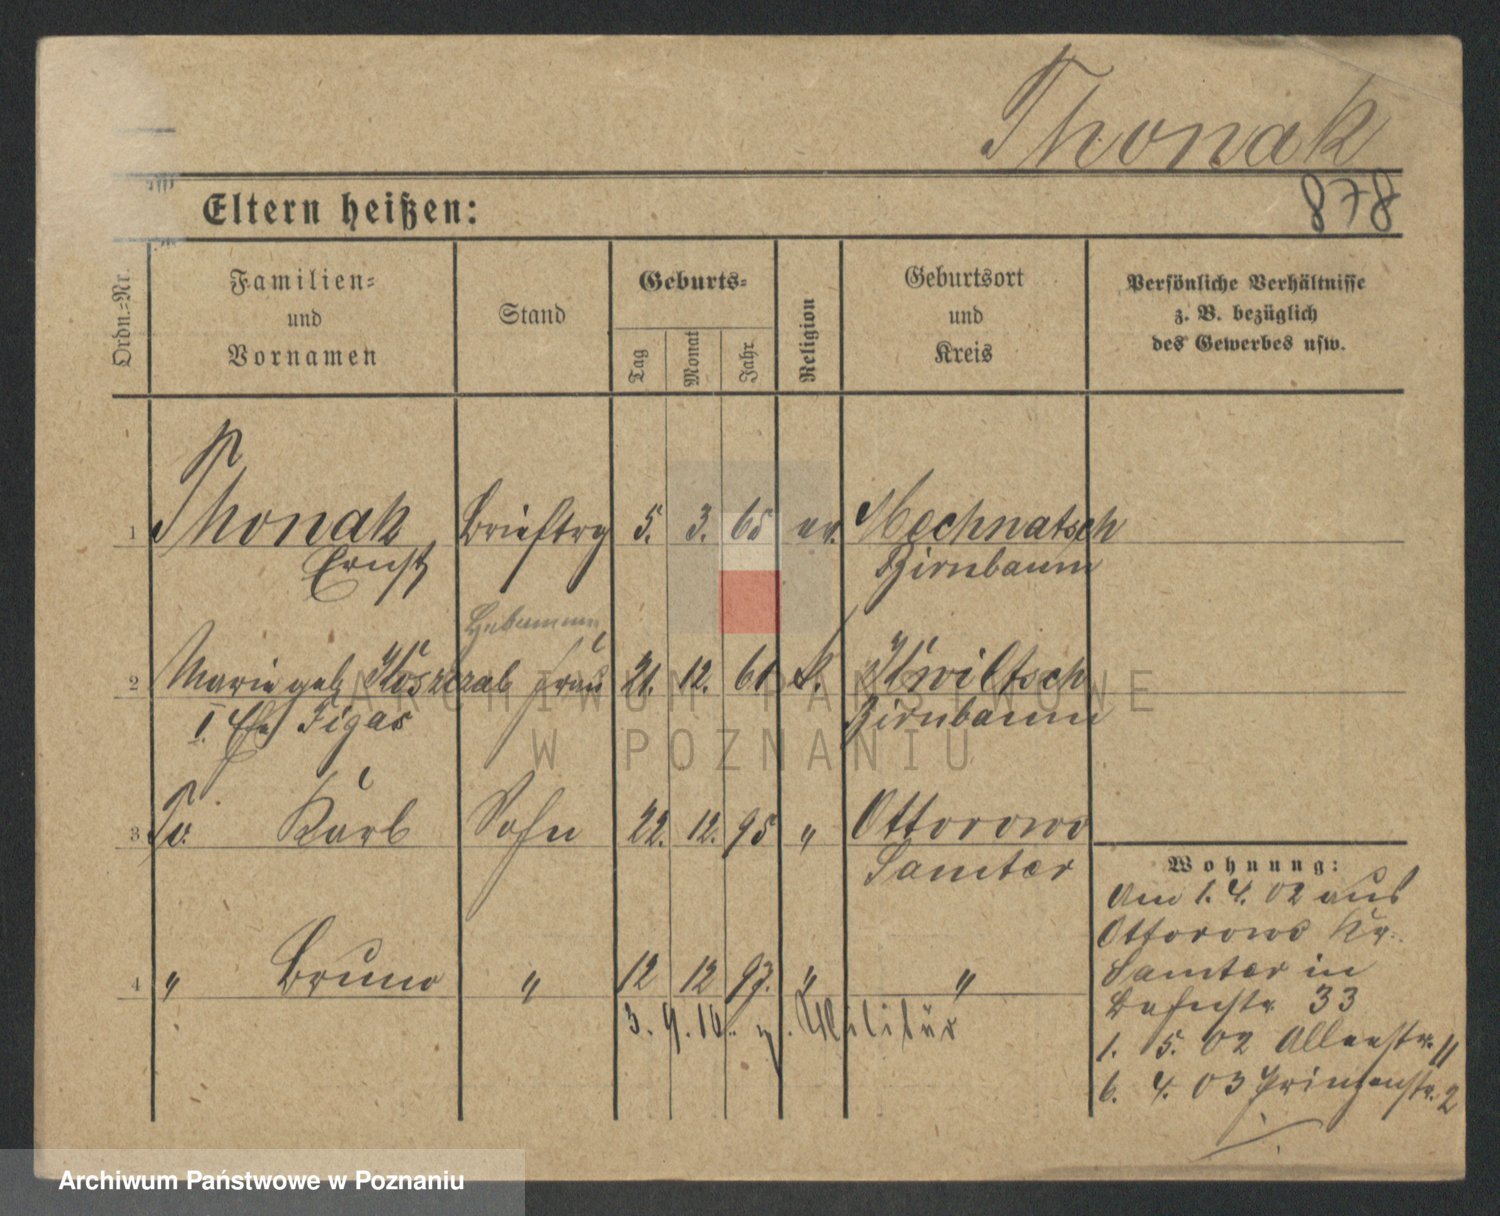 Thonak
878
Eltern heißen:
Ordn.-Nr.
Familien-
und
Vornamen
Stand
Geburts-
Tag
Monat
Jahr
Religion
Geburtsort
und
Kreis
Persönliche Verhältnisse
z. B. bezüglich
des Gewerbes usw.
1 Thonak Brieftrg 5. 3. 65 ev. Mechnatsch
Ernst Birnbaum
Hebamme
2 Marie geb. Koszczab Frau 21. 12. 61 k. Kwiltsch
I. Ehe Figas Birnbaum
3 Karl Sohn 22. 12. 95 " Ottorowo
Samter
4 " Bruno " 12 12 97. " "
3. 9. 16. z. Militär
Wohnung:
Am 1. 4. 02 aus
Ottorowo Kr.
Samter in
33
1. 5. 02 Alleestr. 11
6. 4. 03 Prinzenstr. 2
ARCHIWUM PAŃSTWOWE
W POZNANIU
Archiwum Państwowe w Poznaniu